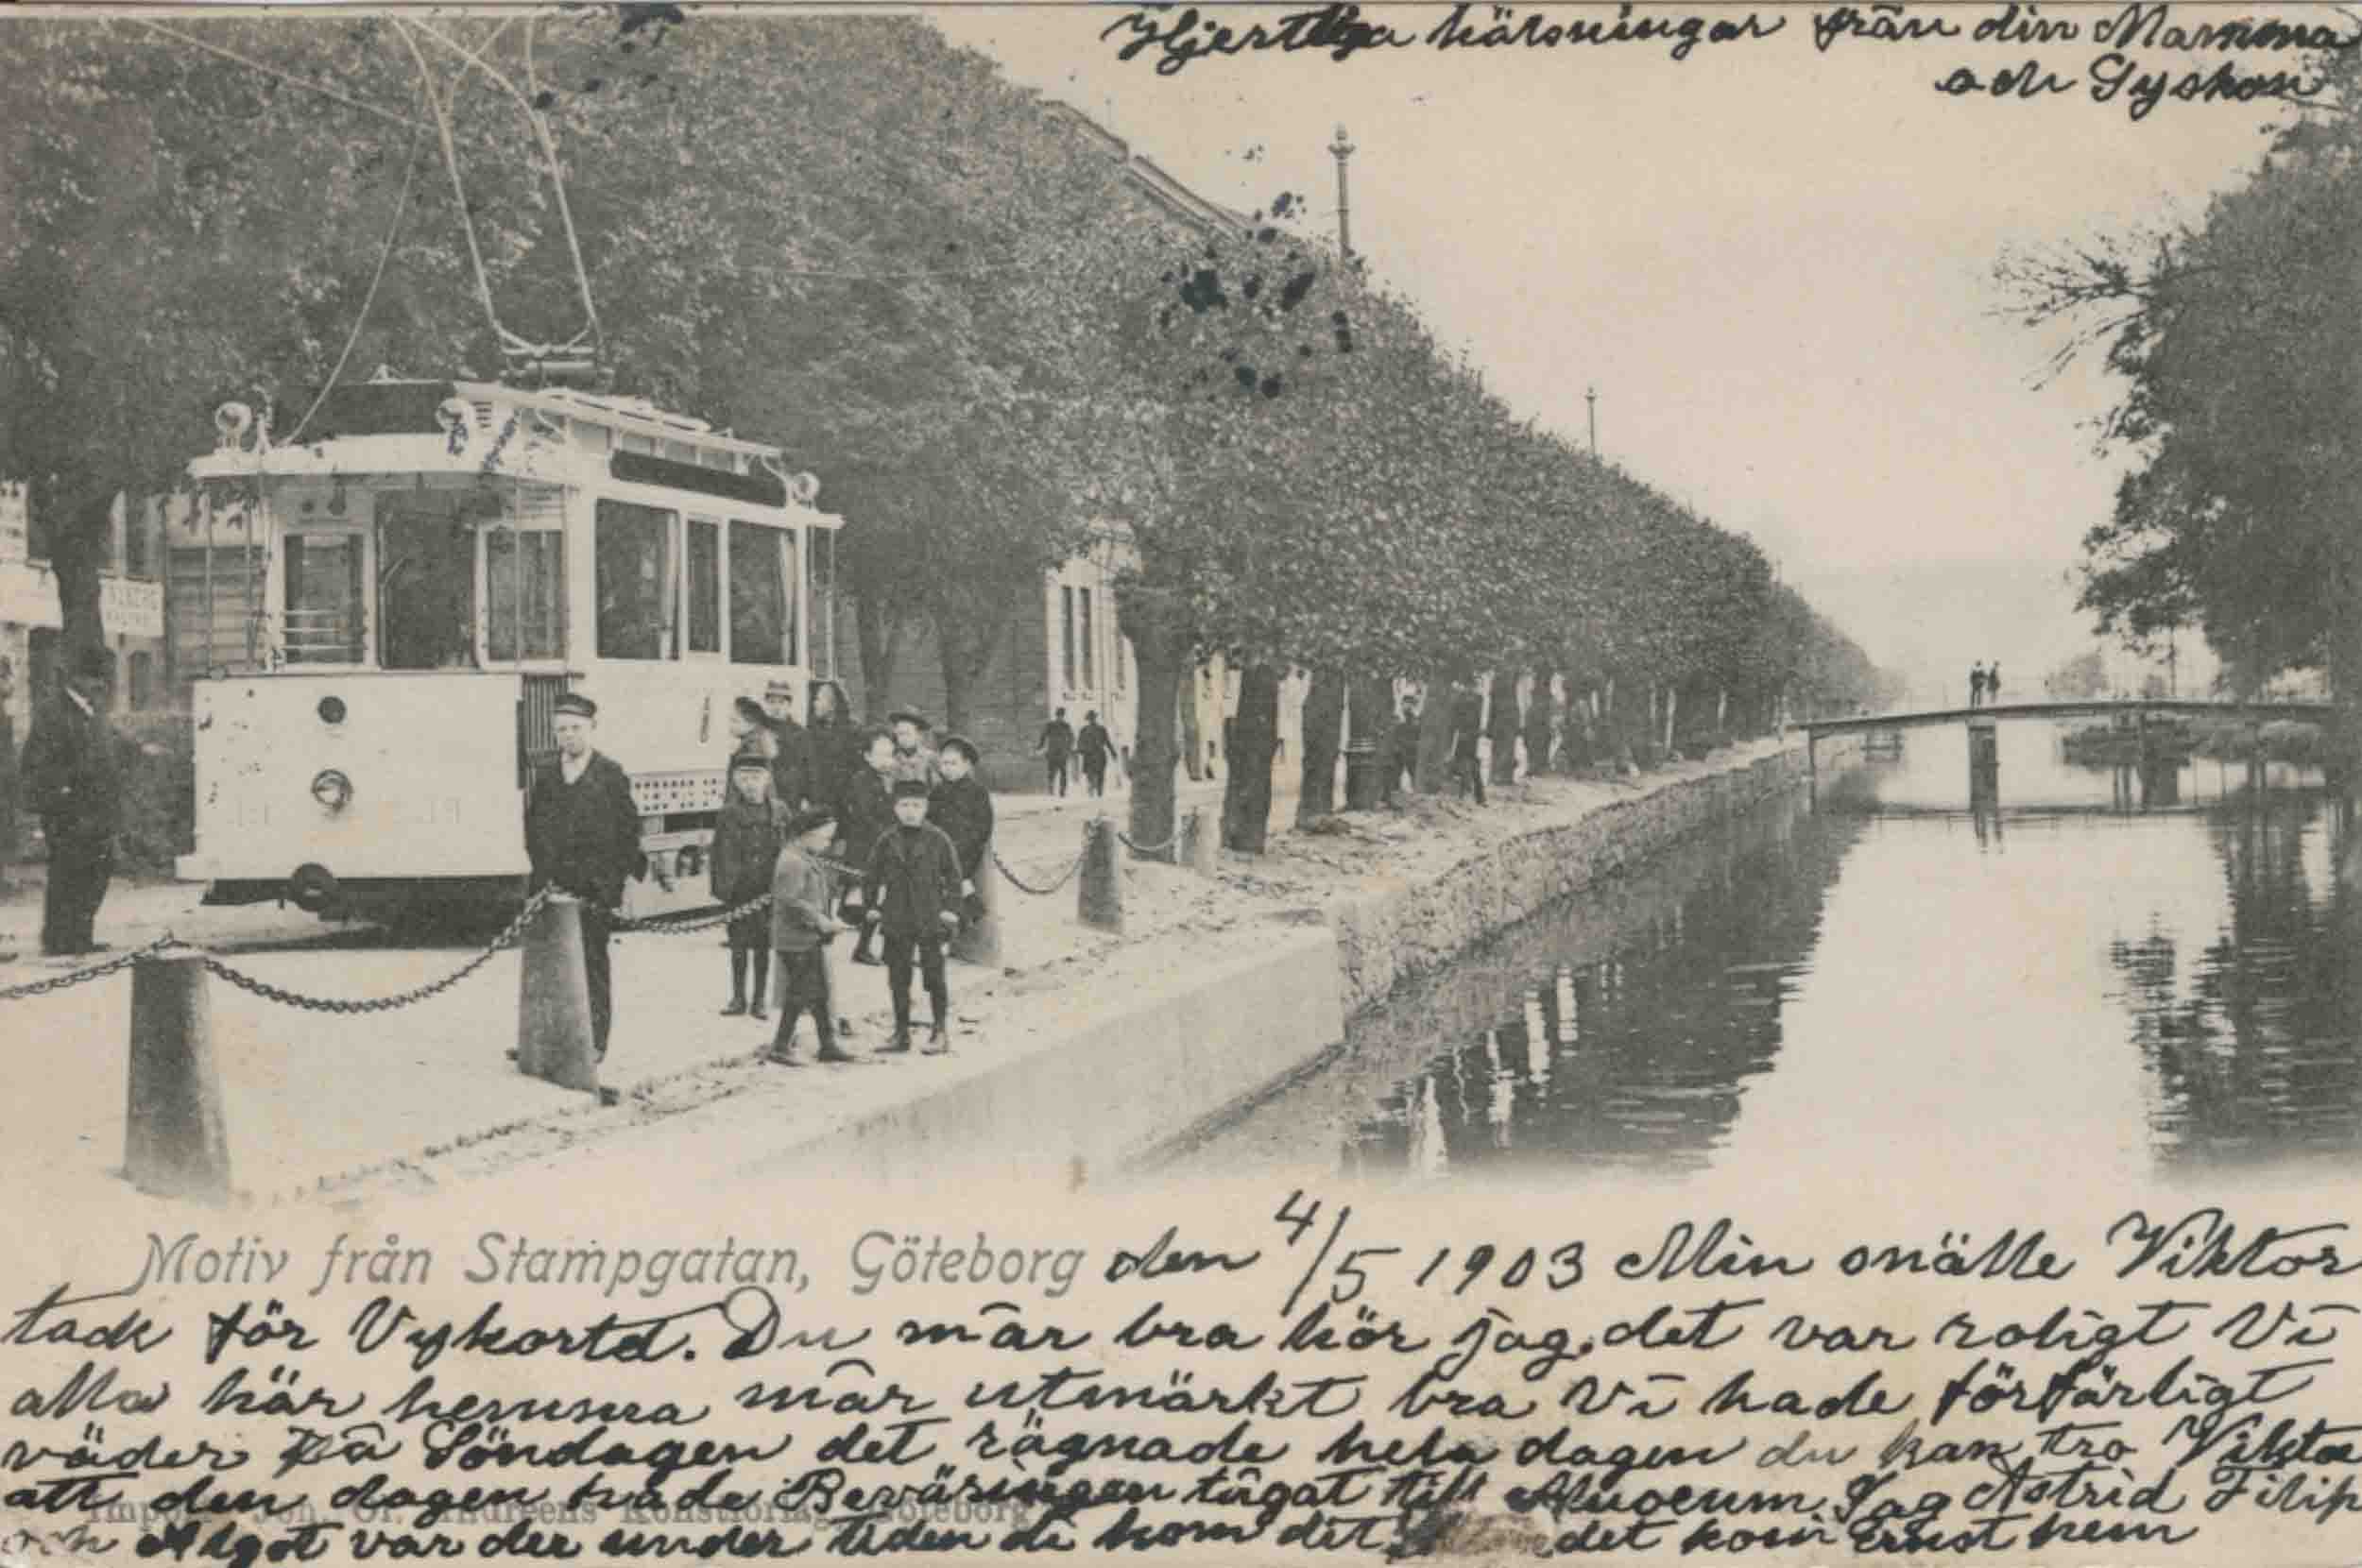 Hjertliga hälsningar från din Mamma
och Syskon
Motiv från Stampgatan, Göteborg den 4/5 1903 Min snälle Viktor
tack för Vykortet. Du mår bra hör jag, det var roligt Vi
alla här hemma mår utmärkt bra Vi hade förfärligt
väder på Söndagen det rägnade hela dagen du kan tro Viktor
att den dagen hade Beväringen tågat till Museum Jag Astrid Filip
Import. Joh. Ol. Andreens Konstförlag, Göteborg
och Algot var der under tiden di kom dit det kom Ernst hem